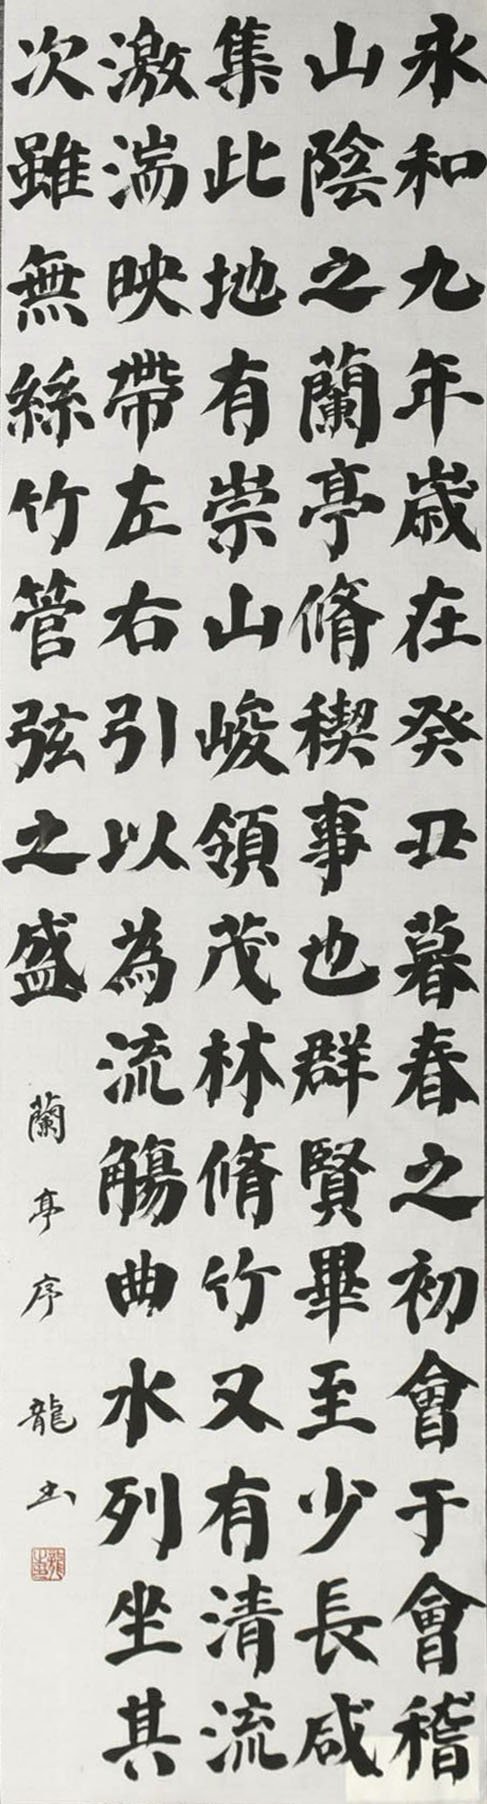 永和九年歲在癸丑暮春之初會于會稽
山陰之蘭亭脩稧事也群賢畢至少長咸
集此地有崇山峻領茂林脩竹又有清流
激湍映帶左右引以為流觴曲水列坐其
次雖無絲竹管弦之盛
蘭亭序 龍出